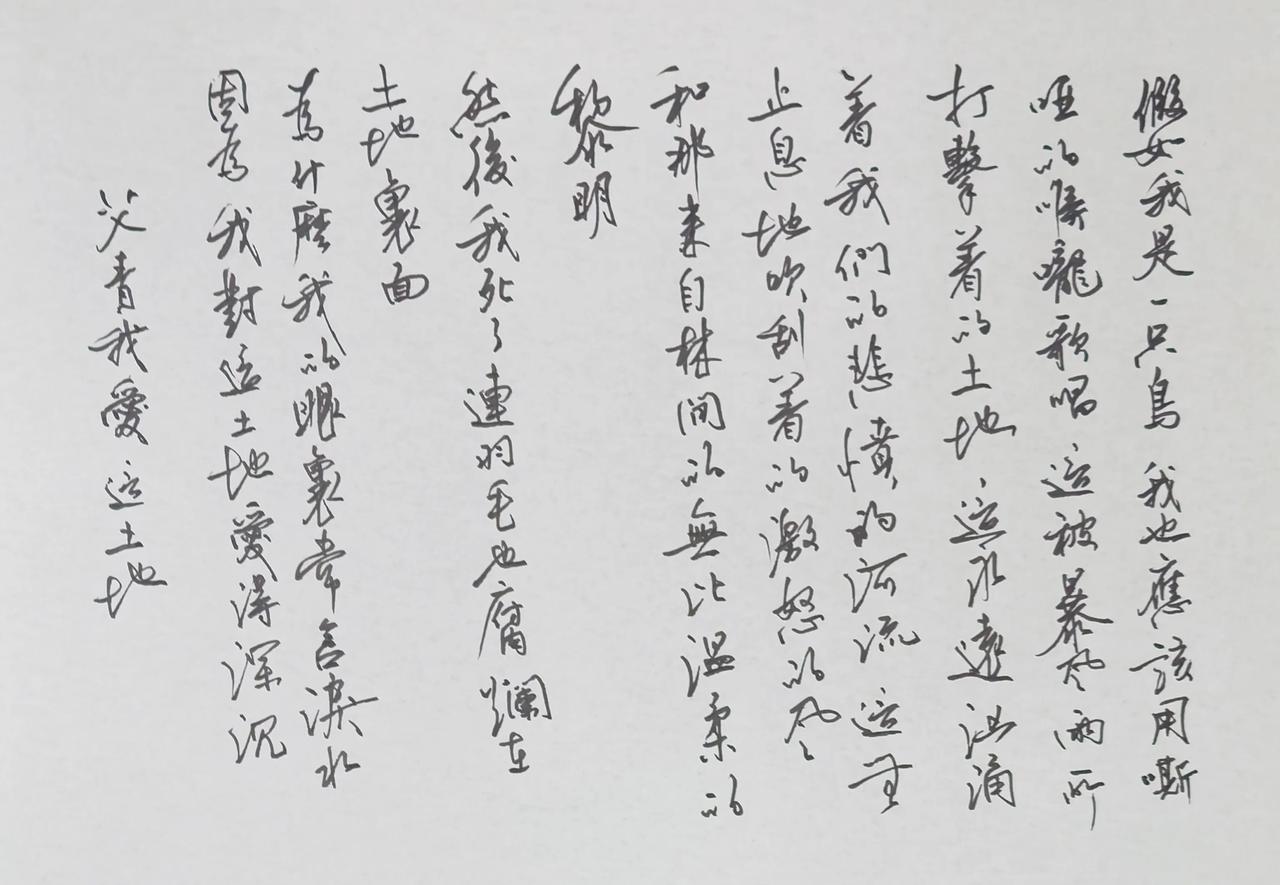 假如我是一只鳥 我也應該用嘶
啞的喉嚨歌唱 這被暴风雨所
打擊着的土地、這永遠汹涌
着我們的悲憤的河流 這无
止息地吹刮着的激怒的风
和那来自林间的無比温柔的
黎明
然後我死了連羽毛也腐爛在
土地裏面
為什麽我的眼裏常含淚水
因為我對這土地愛得深沉
艾青我愛這土地